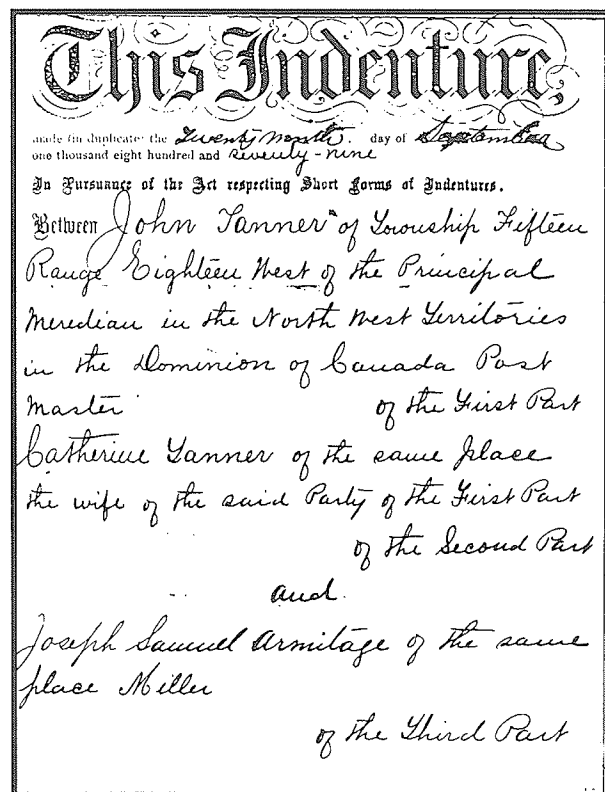 This Indenture,
made (in duplicate) the Twenty Ninth. day of September
one thousand eight hundred and seventy-nine
In Pursuance of the Act respecting Short Forms of Indentures.
Between John Tanner of Township Fifteen
Range Eighteen West of the Principal
Meredian in the North West Territories
in the Dominion of Canada Post
Master of the First Part
Catherine Tanner of the same place
the wife of the said Party of the First Part
of the Second Part
and
Joseph Samuel Armitage of the same
place Miller
of the Third Part